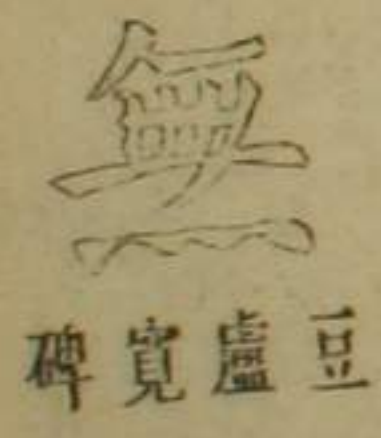 無
豆盧寬碑